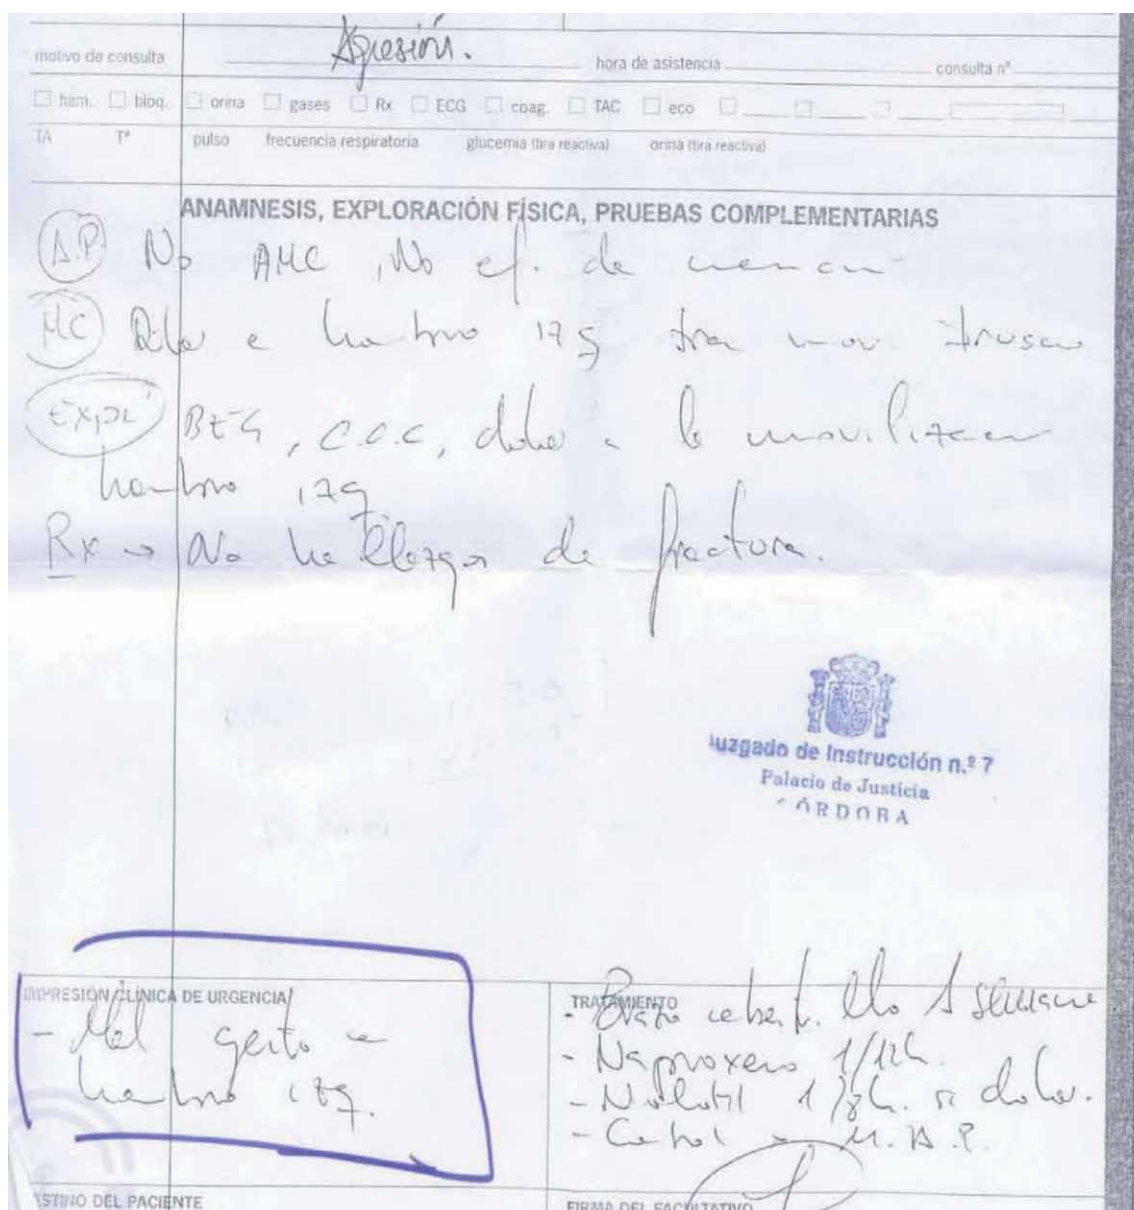 motivo de consulta Agresión. hora de asistencia consulta nº
hem. bioq. orina gases Rx ECG coag. TAC eco
TA Tª pulso frecuencia respiratoria glucemia (tira reactiva) orina (tira reactiva)
ANAMNESIS, EXPLORACIÓN FÍSICA, PRUEBAS COMPLEMENTARIAS
A.P No AMC, No ef. de
MC Dolor e hombro izq tras mov. brusco
Expl BEG, C.O.C, dolor a la movilizacion
hombro izq
Rx → No hallazgos de fractura.
Juzgado de Instrucción n.º 7
Palacio de Justicia
CÓRDOBA
IMPRESIÓN CLÍNICA DE URGENCIA
- Mal gesto e
hombro izq.
TRATAMIENTO
- Brazo cabestrillo 1 semana
- Naproxeno 1/12h.
- Nolotil 1/8h. si dolor.
- Control M.A.P.
DESTINO DEL PACIENTE
FIRMA DEL FACULTATIVO